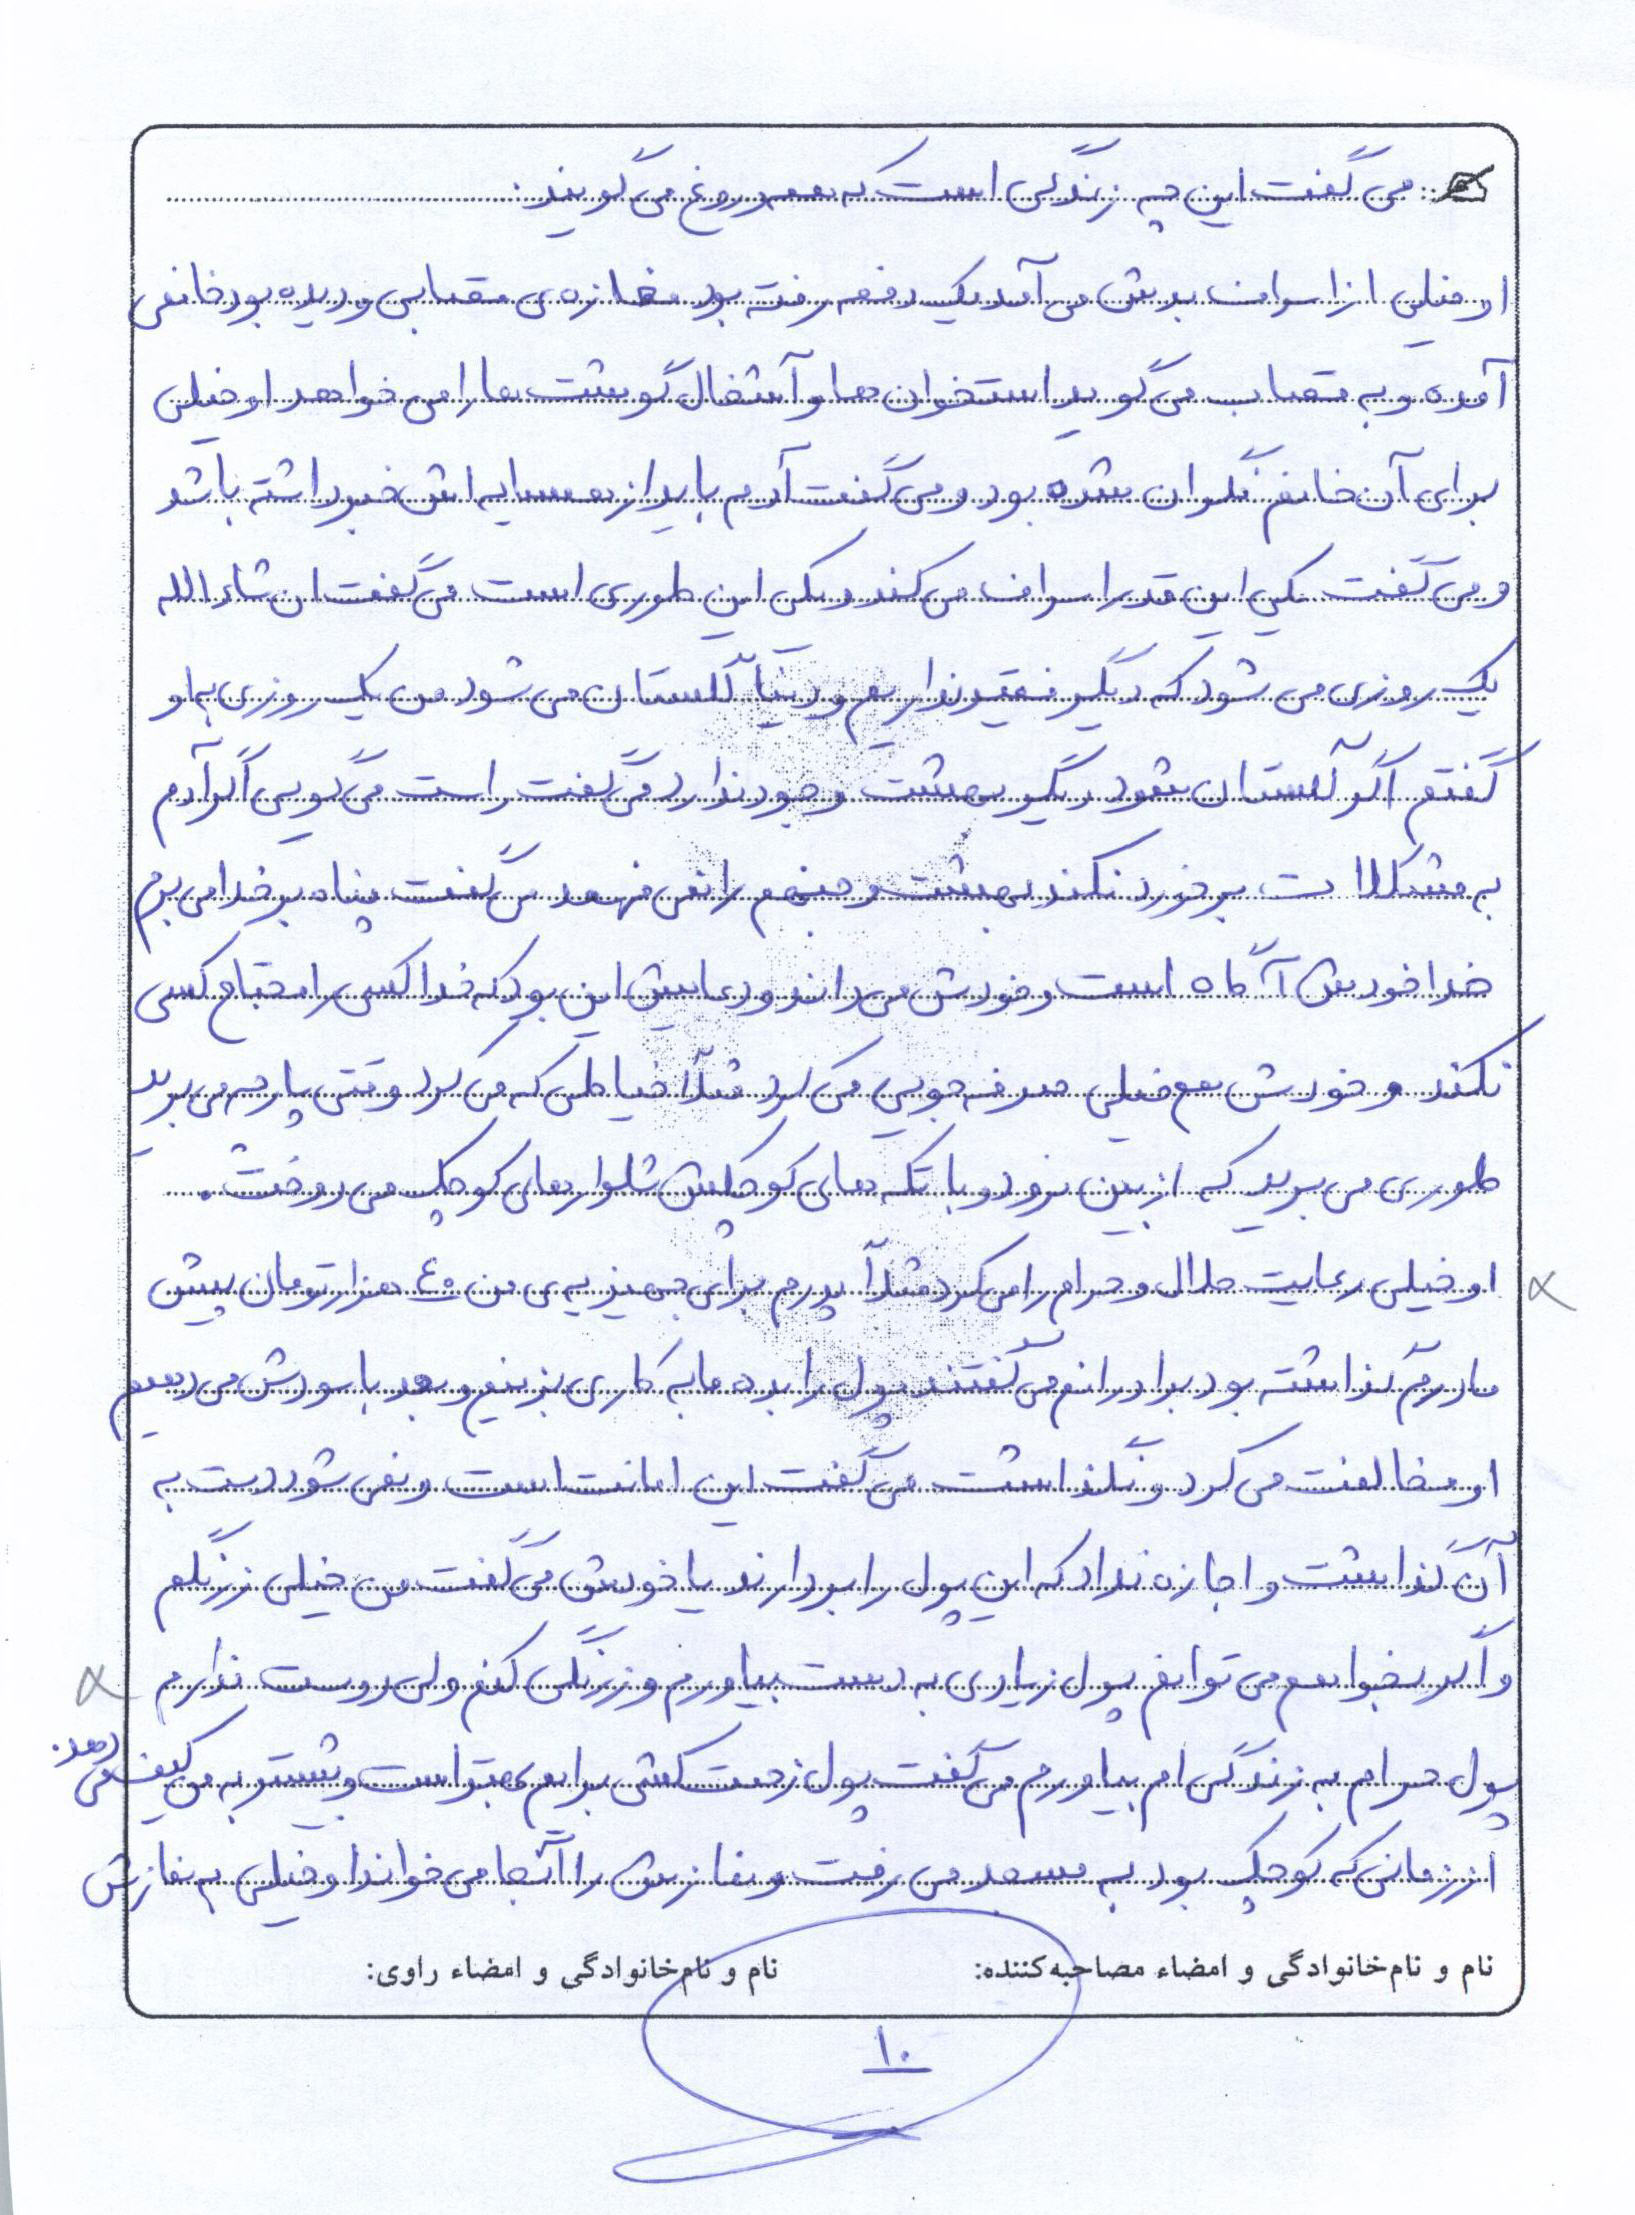 می گفت این چه زندگی است که همه دروغ می گویند.
او خیلی از اسراف بدش می آمد یک دفعه رفته بود مغازه ی قصابی و دیده بود خانمی
آمده و به قصاب می گوید استخوان ها و آشغال گوشت ها را می خواهد او خیلی
برای آن خانم نگران شده بود و می گفت آدم باید از همسایه اش خبر داشته باشد
و می گفت یکی این قدر اسراف می کند و یکی این طوری است می گفت ان شاءالله
یک روزی می شود که دیگر فقیر نداریم و دنیا گلستان می شود من یک روزی به او
گفتم اگر گلستان بشود دیگر بهشت وجود ندارد می گفت راست می گویی اگر آدم
به مشکلات برخورد نکند بهشت و جهنم را نمی فهمد می گفت پناه بر خدا می برم
خدا خودش آگاه است و خودش می داند و دعایش این بود که خدا کسی را محتاج کسی
نکند و خودش هم خیلی صرفه جویی می کرد مثلاً خیاطی که می کرد وقتی پارچه می برید
طوری می برید که از بین نرود و با تکه های کوچکش شلوارهای کوچک می دوخت.
او خیلی رعایت حلال و حرام را می کرد مثلاً پدرم برای جهیزیه ی من ۴۰ هزار تومان پیش
مادرم گذاشته بود برادرانم می گفتند پول را بده ما به کاری بزنیم و بعد با سودش می دهیم
او مخالفت می کرد و نگذاشت می گفت این امانت است و نمی شود دست به
آن گذاشت و اجازه نداد که این پول را بردارند یا خودش می گفت من خیلی زرنگم
و اگر بخواهم می توانم پول زیادی به دست بیاورم و زرنگی کنم ولی دوست ندارم
پول حرام به زندگی ام بیاورم می گفت پول زحمت کشی برایم بهتر است و بیشتر به من کیف می دهد.
از زمانی که کوچک بود به مسجد می رفت و نمازش را آنجا می خواند او خیلی به نمازش
نام و نام‌خانوادگی و امضاء مصاحبه‌کننده: نام و نام‌خانوادگی و امضاء راوی:
۱۰